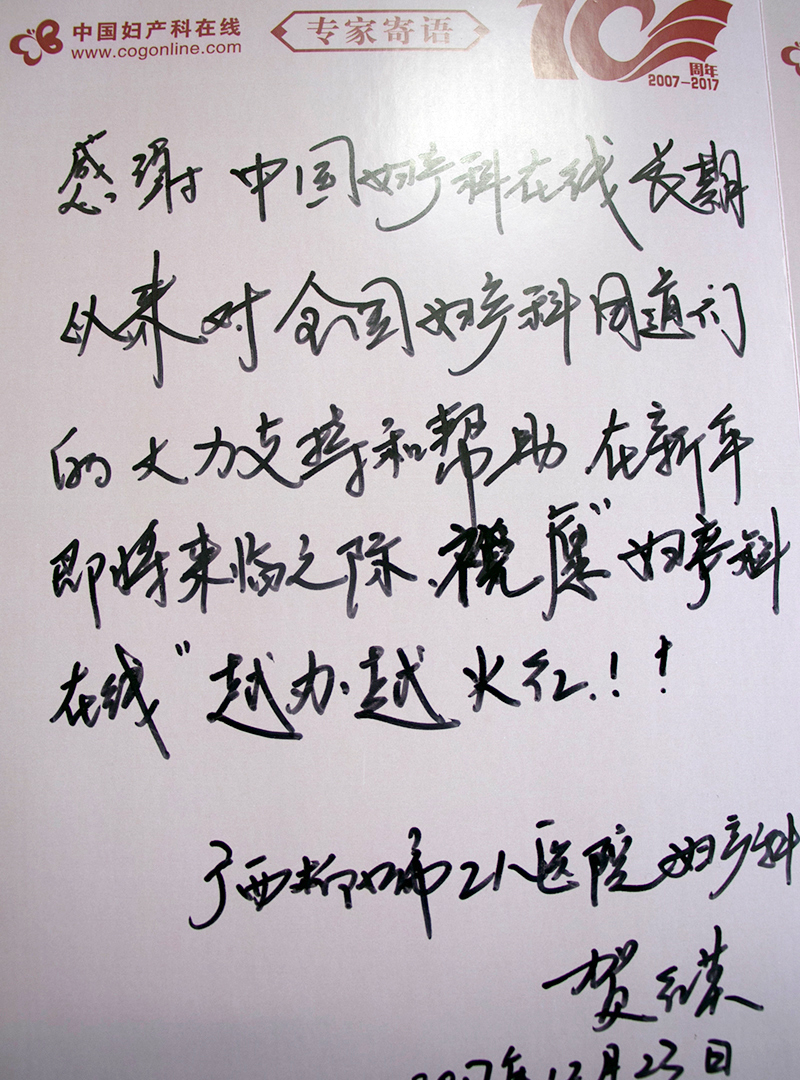 中国妇产科在线
www.cogonline.com
专家寄语
10
周年
2007-2017
感谢 中国妇产科在线 长期
以来 对 全国 妇产科 同道们
的大力支持和帮助 在新年
即将来临之际,祝愿"妇产科
在线"越办越 火红!!
广西柳州市工人医院 妇产科
贺红
2017年12月23日